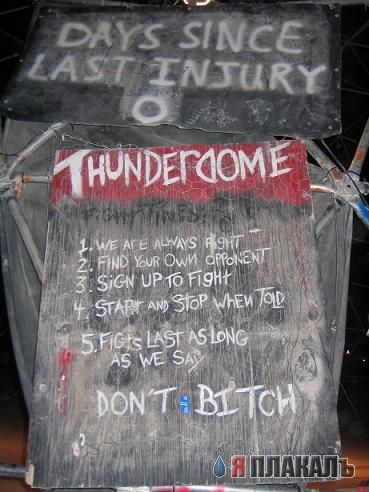 DAYS SINCE
LAST INJURY
0
THUNDERDOME
1. WE ARE ALWAYS RIGHT
2. FIND YOUR OWN OPPONENT
3. SIGN UP TO FIGHT
4. START AND STOP WHEN TOLD
5. FIGTS LAST AS LONG
AS WE SAY
DON'T BITCH
ЯПЛАКАЛЪ